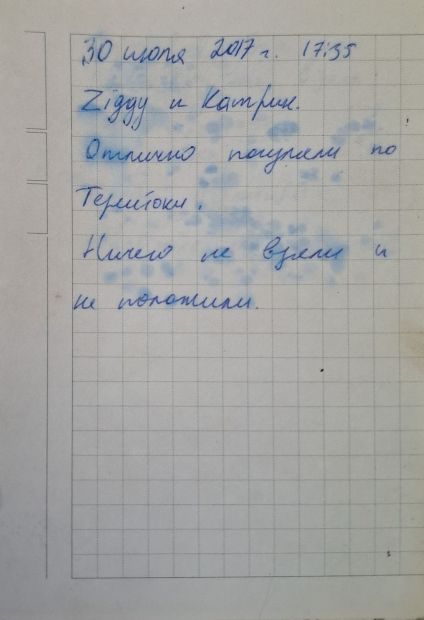 30 июля 2017 г. 17:35
Ziggy и Катрин.
Отлично погуляли по
Терийоки.
Ничего не взяли и
не положили.